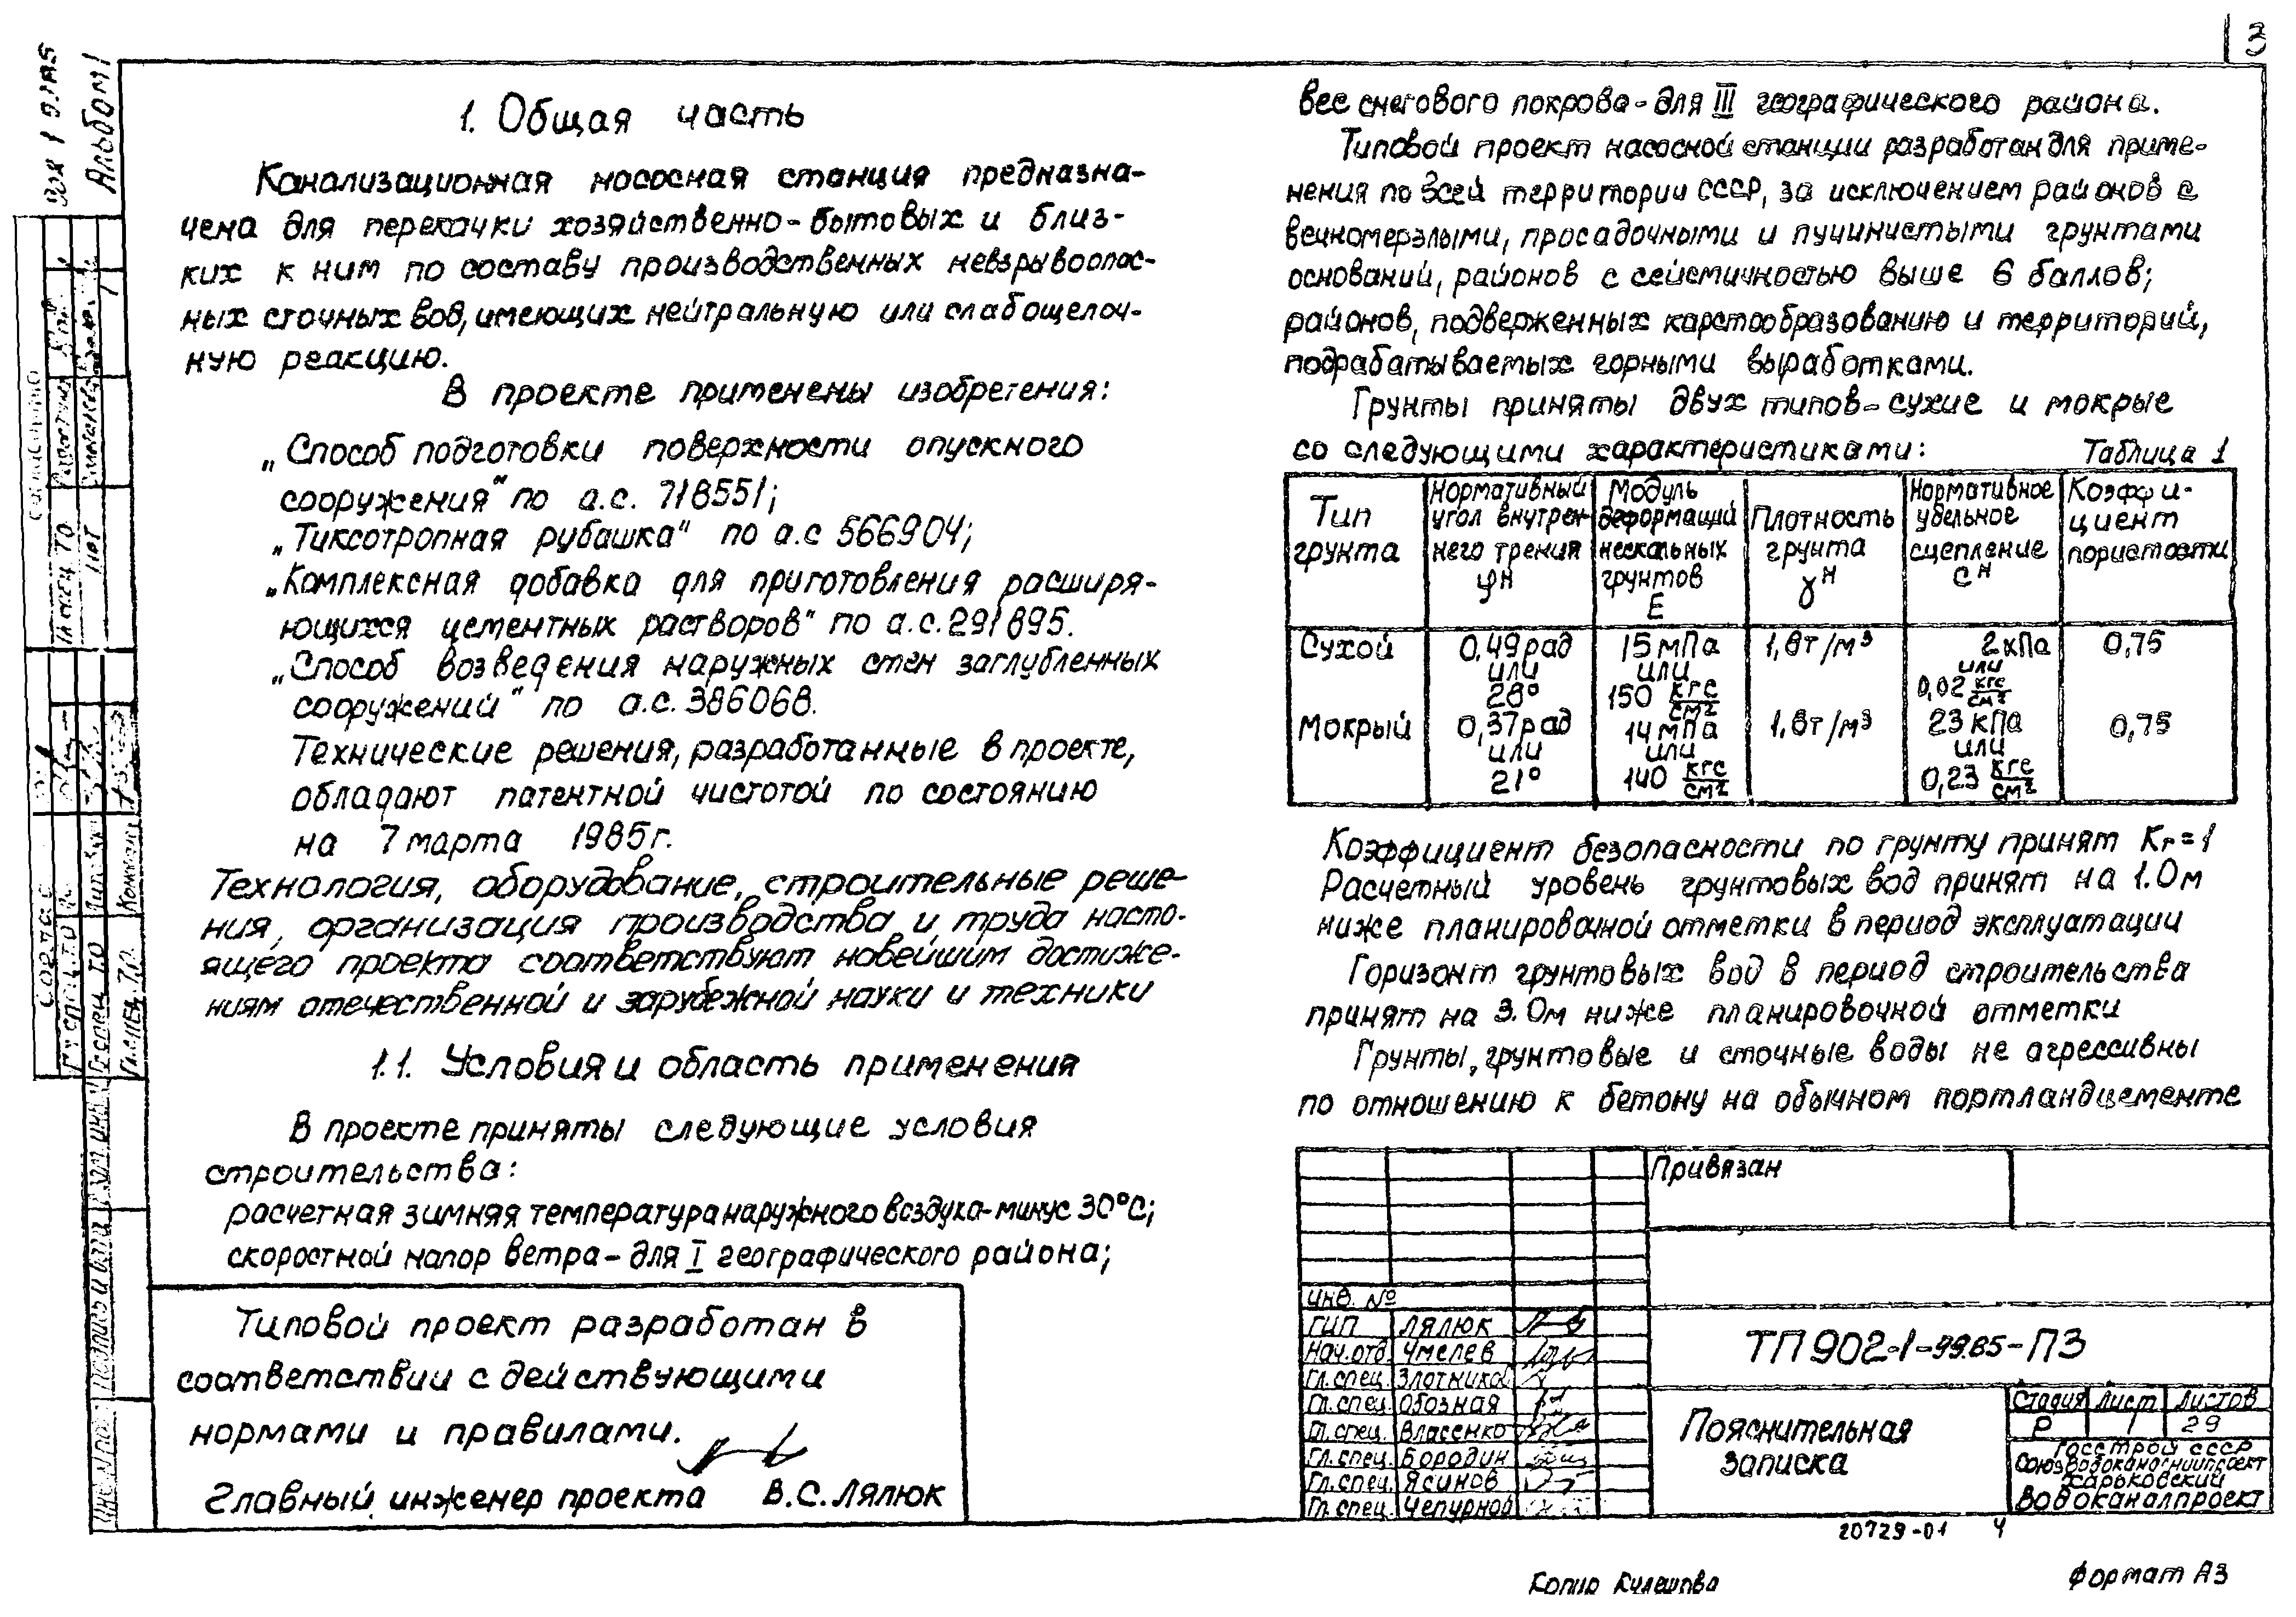 3
Альбом 1
1. Общая часть
Канализационная насосная станция предназна-
чена для перекачки хозяйственно-бытовых и близ-
ких к ним по составу производственных невзрывоопас-
ных сточных вод, имеющих нейтральную или слабощелоч-
ную реакцию.
В проекте применены изобретения:
„Способ подготовки поверхности опускного
сооружения" по а.с. 718551;
„Тиксотропная рубашка" по а.с 566904;
„Комплексная добавка для приготовления расширя-
ющихся цементных растворов" по а.с. 291895.
„Способ возведения наружных стен заглубленных
сооружений" по а.с. 386068.
Технические решения, разработанные в проекте,
обладают патентной чистотой по состоянию
на 7 марта 1985г.
Технология, оборудование, строительные реше-
ния, организация производства и труда насто-
ящего проекта соответствуют новейшим достиже-
ниям отечественной и зарубежной науки и техники
1.1. Условия и область применения
В проекте приняты следующие условия
строительства:
расчетная зимняя температура наружного воздуха-минус 30°С;
скоростной напор ветра - для I географического района;
Типовой проект разработан в
соответствии с действующими
нормами и правилами.
Главный инженер проекта В.С. Лялюк
вес снегового покрова - для III географического района.
Типовой проект насосной станции разработан для приме-
нения по всей территории СССР, за исключением районов с
вечномерзлыми, просадочными и пучинистыми грунтами
оснований, районов с сейсмичностью выше 6 баллов;
районов, подверженных карстообразованию и территорий,
подрабатываемых горными выработками.
Грунты приняты двух типов - сухие и мокрые
со следующими характеристиками: Таблица 1
Тип грунта
Нормативный угол внутрен- него трения φн
Модуль деформаций нескальных грунтов E
Плотность грунта γн
Нормативное удельное сцепление сн
Коэффи- циент пористости
Сухой 0,49 рад или 28° 15 мПа или 150 кгс/см² 1,8т/м³ 2 кПа или 0,02 кгс/см² 0,75
Мокрый 0,37 рад или 21° 14 мПа или 140 кгс/см² 1.8т/м³ 23 кПа или 0,23 кгс/см² 0,75
Коэффициент безопасности по грунту принят Кг=1
Расчетный уровень грунтовых вод принят на 1.0м
ниже планировочной отметки в период эксплуатации
Горизонт грунтовых вод в период строительства
принят на 3.0м ниже планировочной отметки
Грунты, грунтовые и сточные воды не агрессивны
по отношению к бетону на обычном портландцементе
Привязан
Инв. №
ГИП Лялюк
Нач.отд. Чмелев
Гл.спец. Злотников
Гл.спец. Обозная
Гл.спец. Власенко
Гл.спец. Бородин
Гл.спец. Ясинов
Гл.спец. Чепурной
ТП 902-1-99.85-ПЗ
Пояснительная
записка
Стадия Лист Листов
Р 1 29
Госстрой СССР
Союзводоканалниипроект
Харьковский
Водоканалпроект
20729-01 4
Копир Кулешова
Формат А3